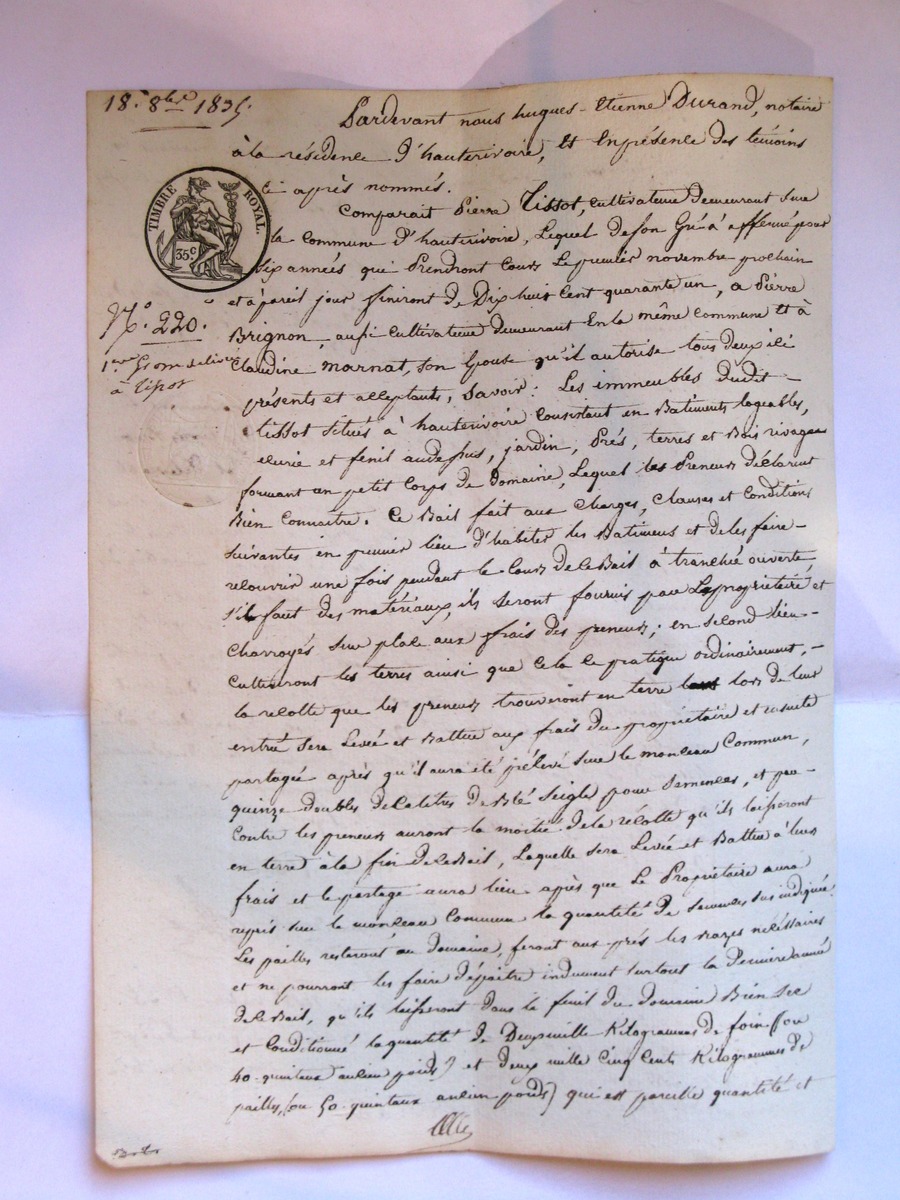 18. 8bre 1835.
Pardevant nous hugues-Etienne Durand, notaire
à la résidence d'hauterivoire, Et En présence des témoins
ci après nommés.
TIMBRE ROYAL.
35 c.
Comparait Pierre Tissot, Cultivateur demeurant sur
la Commune d'hauterivoire, Lequel de son Gré à affermé pour
six années qui Prendront Cours Le premier novembre prochain
et à pareil jour finiront de Dix huit Cent quarante un, a Pierre
N.o 220.
Brignon, aussi Cultivateur demeurant En la même Commune Et à
1ere Grosse delivrée
à Tissot
Claudine Marnat, son Epouse qu'il autorise tous deux ici
présents et acceptants, Savoir: Les immeubles dudit
tissot situés à hauterivoire Consistant en Batiments logeables,
écurie et fenil audessus, jardin, Prés, terres et Bois rivages
formant un petit Corps de domaine, Lequel les Preneurs déclarent
Bien Connaitre. Ce Bail fait aux Charges, Clauses et Conditions
suivantes en premier lieu d'habiter les Batimens et de les faire
recouvrir une fois pendant le Cours de le Bail à tranchée ouverte
s'il faut des matériaux, ils seront fournis par Le propriétaire et
Charroyés sur place aux frais des preneurs; en second lieu
Cultiveront les terres ainsi que Cela se pratique ordinairement,
la recolte que les preneurs trouveront en terre lors de leur
entrée sera Levée et Battue aux frais du propriétaire et ensuite
partagée après qu'il aura été prélevé sur le monceau Commun,
quinze doubles decalitres de Blé Seigle pour Semences, et par
Contre les preneurs auront la moitié de la récolte qu'ils laisseront
en terre à la fin de le Bail, Laquelle sera Levée et Battue à leurs
frais et le partage aura lieu après que Le Propriétaire aura
repris sur le monceau Commun la quantité de Semences sus indiquée
Les pailles resteront au domaine, feront aux prés les razes nécéssaires
et ne pourront les faire dépaitre indument surtout la Derniere année
de le Bail, qu'ils laisseront dans le fenil du domaine Bien sec
et Conditionné la quantité de Deux mille Kilogrammes de foin (ou
40 quintaux ancien poids) et deux mille Cinq Cents Kilogrammes de
pailles, (ou 50 quintaux ancien poids) qui est pareille quantité et